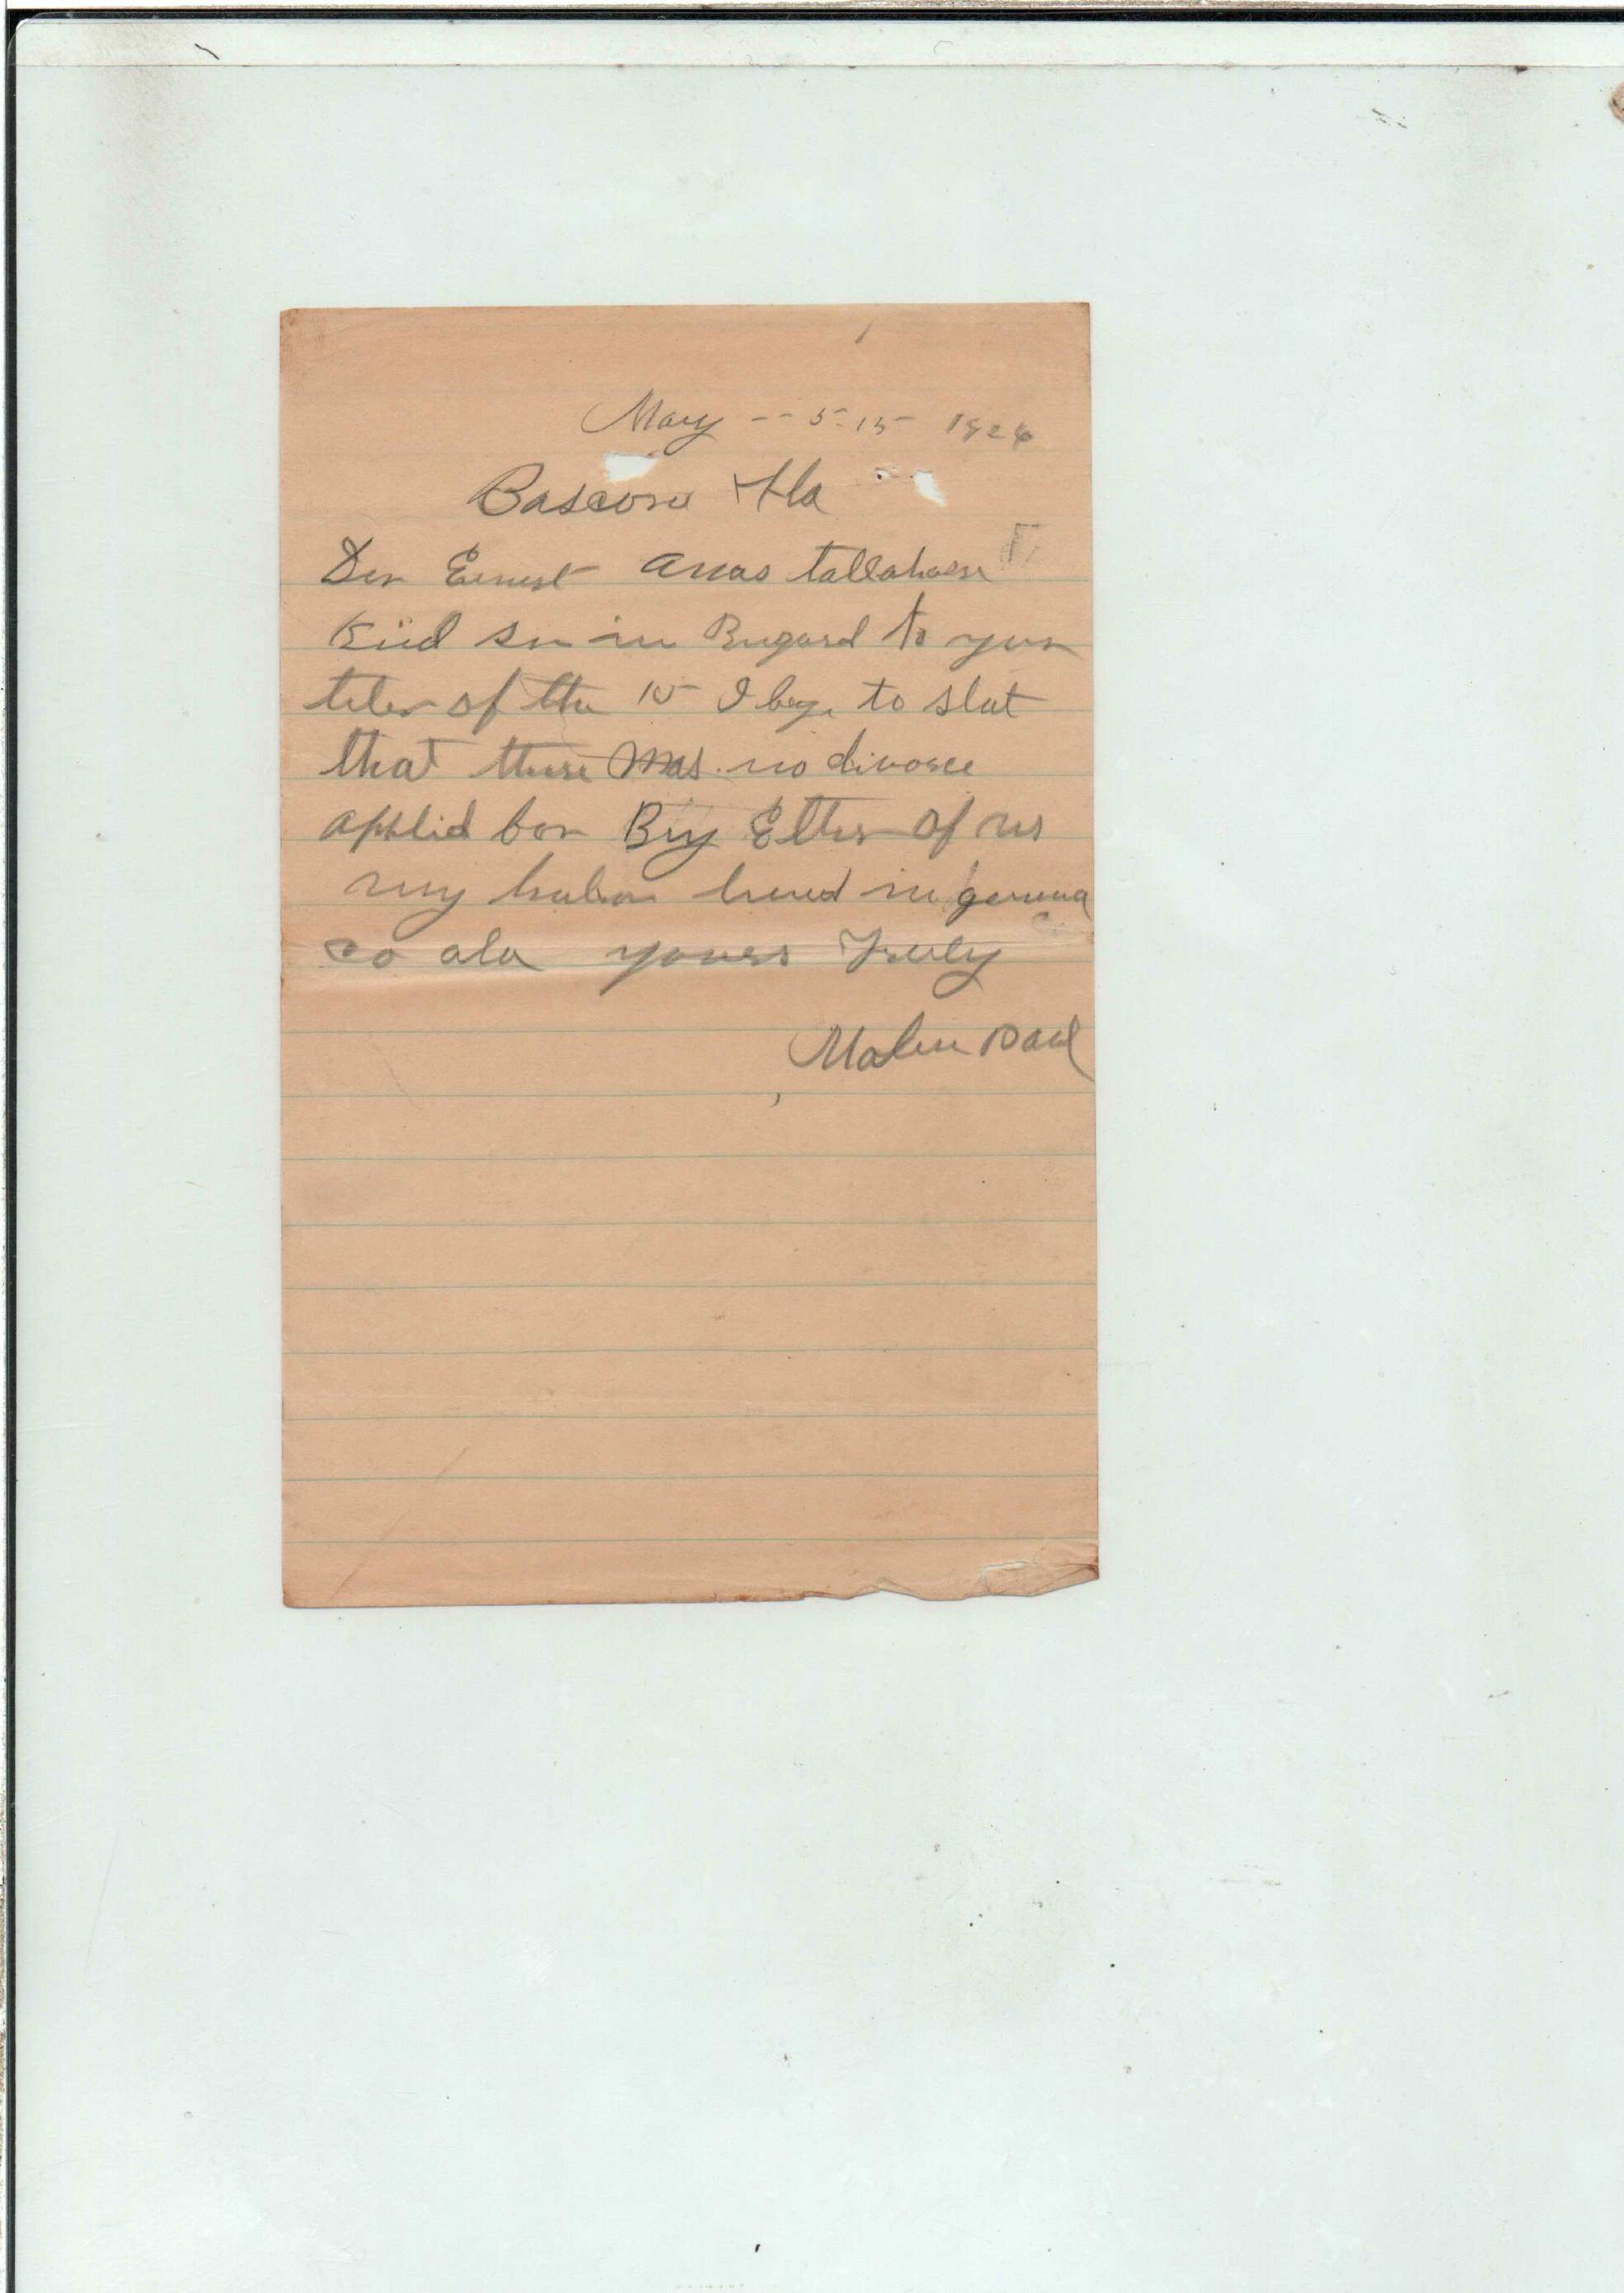 May -- 5-15 1926
Bascom Fla
Der Ernest Amos tallahasse
Kiid Sir in Regard to your
of the 15 I beg to stat
that there Was no divorce
applid for By Ether of us
my lived in geneva
co ala yours Truly